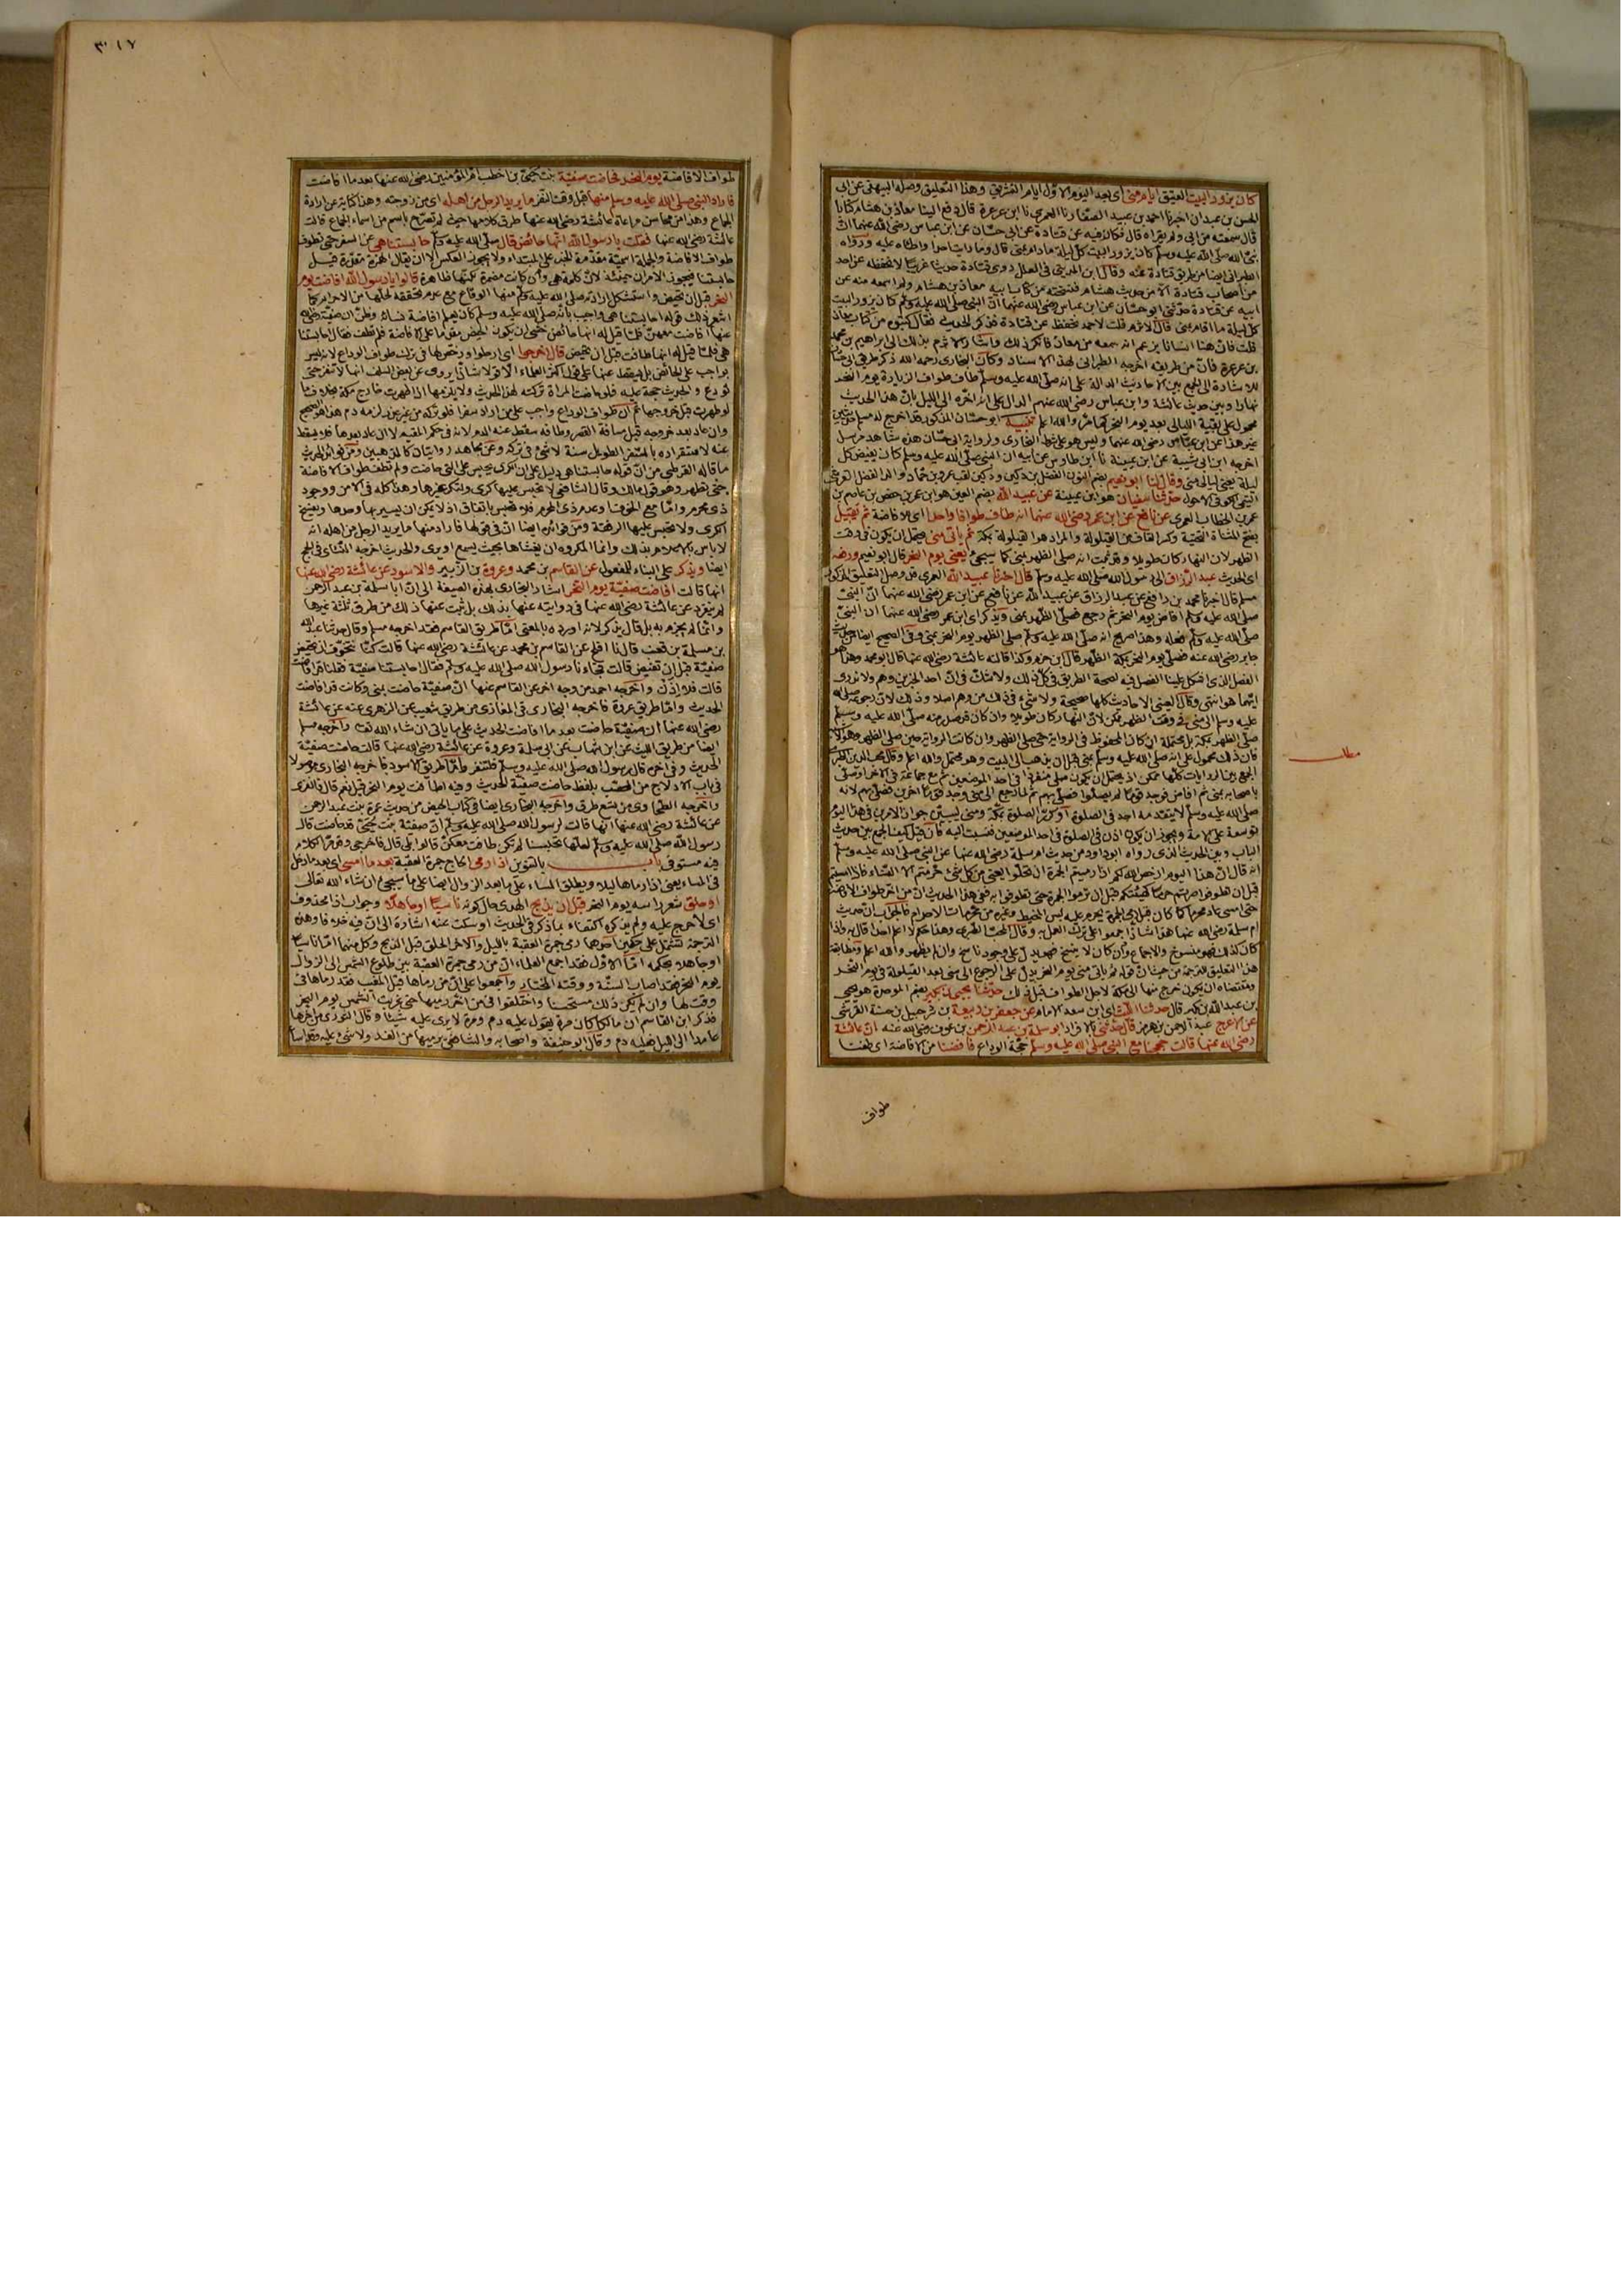 كان يزور البيت العتيق ايام منى اى بعد اليوم الاول ايام التشريق وهذا التعليق وصله البيهقى عن ابى
الحسن بن عبدان اخبرنا احمد بن عبيد الصفار نا العمرى نا ابن عرعرة قال دفع الينا معاذ بن هشام كتابا
قال سمعته من ابى ولم يقراه قال فكان فيه عن قتادة عن ابى حسّان عن ابن عباس رضى الله عنهما انّ
نبىّ الله صلى الله عليه وسلم كان يزور البيت كل ليلة مادام بمنى قال وما رايت احدا واطاه عليه ورواه
الطبرانى ايضا من طريق قتادة عنه وقال ابن المدينى فى العلل روى قتادة حديثا غريبا لا نحفظه عن احد
من اصحاب قتادة الا من حديث هشام فنسخته من كتاب ابنه معاذ بن هشام ولم اسمعه منه عن
ابيه عن قتادة حدثنى ابو حسّان عن ابن عباس رضى الله عنهما انّ النبى صلى الله عليه وسلم كان يزور البيت
كل ليلة ما اقام بمنى قال الاثرم قلت لاحمد تحفظ عن قتادة فذكر الحديث فقال كتبوه من كتاب معاذ
قلت فانّ هنا انسانا يزعم انه سمعه من معاذ فانكر ذلك واشار الاثرم بذلك الى ابراهيم بن محمد
بن عرعرة فانّ من طريقه اخرجه الطبرانى بهذا الاسناد وكأنّ البخارى رحمه الله ذكر طريق ابى حسان
للاشارة الى الجمع بين الاحاديث الدالة على انه صلى الله عليه وسلم طاف طواف الزيارة يوم النحر
نهارا وبين حديث عائشة وابن عباس رضى الله عنهم الدال على انه اخره الى الليل بانّ هذا الحديث
محمول على بقية الليالى بعد يوم النحر كما مرّ والله اعلم تنبيه ابو حسّان المذكور قد اخرج له مسلم حديثين
غير هذا عن ابن عبّاس رضى الله عنهما وليس هو على شرط البخارى ولرواية ابى حسّان هذه شاهد مرسل
اخرجه ابن ابى شيبة عن ابن عيينة نا ابن طاوس عن ابيه ان النبى صلى الله عليه وسلم كان يفيض كل
ليلة يعنى ليالى منى وقال لنا ابو نعيم بضم النون الفضل بن دكين ودكين لقب عمرو بن حمّاد والد الفضل القرشى
التيمى الكوفى الاحول حدثنا سفيان هو ابن عيينة عن عبيد الله بضم العين هو ابن عمر بن حفص بن عاصم بن
عمر بن الخطاب العمرى عن نافع عن ابن عمر رضى الله عنهما انه طاف طوافا واحدا اى للافاضة ثم يقيل
بفتح المثناة التحتية وكسر القاف من القيلولة والمراد هو القيلولة بمكة ثم ياتى منى فيحتمل ان يكون فى وقت
الظهر لان النهار كان طويلا وقد ثبت انه صلى الظهر بمنى كما سيجئ يعنى يوم النحر قال ابو نعيم ورفعه
اى الحديث عبد الرزاق الى رسول الله صلى الله عليه وسلم قال اخبرنا عبيد الله العمرى وقد وصل التعليق المذكور
مسلم قال اخبرنا محمد بن رافع عن عبد الرزاق عن عبيد الله عن نافع عن ابن عمر رضى الله عنهما انّ النبىّ
صلى الله عليه وسلم افاض يوم النحر ثم رجع فصلّى الظهر بمنى ويذكر اى ابن عمر رضى الله عنهما ان النبىّ
صلّى الله عليه وسلم فعله وهذا صريح انه صلّى الله عليه وسلم صلى الظهر يوم النحر بمنى وفى الصحيح ايضا من حديث
جابر رضى الله عنه فصلّى يوم النحر بمكة الظهر قال ابن حزم وكذا قالته عائشة رضى الله عنها قال ابو محمد وهذا هو
الفصل الذى اشكل علينا الفصل فيه لصحة الطريق فى كل ذلك ولا شكّ فى انّ احد الخبرين وهم ولا ندرى
ايّهما هو انتهى وقال العينى الاحاديث كلها صحيحة ولا شئ فى ذلك من وهم اصلا وذلك لان رجوعه صلى الله
عليه وسلم الى منى فى وقت الظهر ممكن لان النهار كان طويلا وان كان قد صدر منه صلّى الله عليه وسلم
صلى الظهر بمكة
كان ذلك محمول على انه صلى الله عليه وسلم بمنى قبل ان يذهب الى البيت وهو محتمل والله اعلم وقال محب الدين الطبرى
الجمع بين الروايات كلها ممكن اذ يحتمل ان يكون صلى منفردا فى احد الموضعين ثم مع جماعة فى الآخر او صلّى
باصحابه بمنى ثم افاض فوجد قوما لم يصلّوا فصلّى بهم ثم لما رجع الى منى وجد قوما اخرين فصلّى بهم لانه
صلى الله عليه وسلم لا يتقدمه احد فى الصلوة او كرّر الصلوة بمكة ومنى ليبيّن جواز الامرين فى هذا اليوم
توسعة على الامة ويجوز ان يكون اذن فى الصلوة فى احد الموضعين فنسبت اليه فان قيل كيف الجمع بين حديث
الباب وبين الحديث الذى رواه ابو داود من حديث ام سلمة رضى الله عنها عن النبى صلى الله عليه وسلم
انه قال انّ هذا اليوم ارخص الله لكم اذا رميتم الجمرة ان تحلّوا يعنى من كل شئ حُرمتم الا النساء فاذا امسيتم
قبل ان تطوفوا صرتم حرما كهيئتكم قبل ان ترموا الجمرة حتى تطوفوا به ففى هذا الحديث انّ من اخر طواف الافاضة
حتى امسى عاد محرما كما كان قبل رمى الجمرة يحرم عليه لبس المخيط وغيره من محرمات الاحرام فالجواب ان حديث
ام سلمة رضى الله عنها هذا شاذّ اجمعوا على ترك العمل به وقال المحبّ الطبرى وهذا حكم لا اعلم احدا قال به واذا
كان كذلك فهو منسوخ والاجماع وان كان لا ينسخ فهو يدلّ على وجود ناسخ وان لم يظهر والله اعلم ومطابقة
هذا التعليق للترجمة من حيث ان قوله ثم ياتى منى يوم النحر يدل على الرجوع الى منى بعد القيلولة فى يوم النحر
ومقتضاه ان يكون خرج منها الى مكة لاجل الطواف قبل ذلك حدّثنا يحيى بن بكير بضم الموحدة هو يحيى
بن عبد الله بن بكير قال حدثنا الليث اى ابن سعد الامام عن جعفر بن ربيعة بن شرحبيل بن حسنة القرشى
عن الاعرج عبد الرحمن بن هرمز قال حدثنى بالافراد ابو سلمة بن عبد الرحمن بن عوف رضى الله عنه انّ عائشة
رضى الله عنها قالت حججنا مع النبى صلى الله عليه وسلم حجّة الوداع فافضنا من الافاضة اى طفنا
طواف
مطلب
٣١٧
طواف الافاضة يوم النحر فحاضت صفيّة بنت حُيىّ بن اخطب ام المؤمنين رضى الله عنها بعد ما افاضت
فاراد النبى صلى الله عليه وسلم منها قبل وقت النفر ما يريد الرجل من اهله اى من زوجته وهذا كناية عن ارادة
الجماع وهذا من محاسن مراعاة عائشة رضى الله عنها طرق كلامها حيث لم تصرّح باسم من اسماء الجماع قالت
عائشة رضى الله عنها فقلت يا رسول الله انّها حائض قال صلى الله عليه وسلم حابستنا هى عن السفر حتى تطوف
طواف الافاضة والجملة اسميّة مقدّمة الخبر على المبتداء ولا يجوز العكس الا ان يقال الهمزة مقدّرة قبل
حابستنا فيجوز الامران حينئذ لانّ كلمة هى وان كانت مضمرة لكنها ظاهرة قالوا يا رسول الله افاضت يوم
النحر قبل ان تحيض واستشكل ارادته صلى الله عليه وسلم منها الوقاع مع عدم تحققه لحلّها من الاحرام كما
اشعر ذلك قوله احابستنا هى واجيب بانّه صلى الله عليه وسلم كان يعلم افاضة نسائه وظنّ ان صفيّة رضى الله
عنها افاضت معهنّ فلمّا قيل له انها حائض خشى ان يكون الحيض مقدما على الافاضة فلم تطف فقال احابستنا
هى فلمّا قيل له انها طافت قبل ان تحيض قال اخرجوا اى ارحلوا ورخص لها فى ترك طواف الوداع لانه ليس
بواجب على الحائض بل يسقط عنها على قول اكثر العلماء الا قولا شاذا يروى عن بعض السلف انها لا تنفر حتى
تودع والحديث حجة عليه فلو حاضت المراة تركته لهذا الحديث ولا يلزمها اذا طهرت خارج مكة بخلاف ما
لو طهرت قبل خروجها ثم ان طواف الوداع واجب على من اراد سفرا فلو تركه من غير عذر لزمه دم هذا هو الصحيح
وان عاد بعد خروجه قبل مسافة القصر وطافه سقط عنه الدم لانه فى حكم المقيم لا ان عاد بعدها فلا يسقط
عنه لاستقراره بالسفر الطويل سنة لا شئ فى تركه وعن مجاهد روايتان كالمذهبين ومن فوائد الحديث
ما قاله القرطبى من انّ قوله حابستنا هى دليل على ان الكرى يحبس على التى حاضت ولم تطف طواف الافاضة
حتى تطهر وهو قول مالك وقال الشافعى لا يحبس عليها كرى ولتكر غيرها وهذا كله فى الامن ووجود
ذى محرم وامّا مع الخوف او عدم ذى المحرم فلا تحبس باتفاق اذ لا يمكن ان يسير بها وحدها ويفسخ
الكرى ولا يحبس عليها الرفقة ومن فوائده ايضا انّ فى قولها فاراد منها ما يريد الرجل من اهله انه
لا باس بالاعلام بذلك وانما المكروه ان يغشاها بحيث يسمع او يرى والحديث اخرجه النسائى فى الحج
ايضا ويذكر على البناء للمفعول عن القاسم بن محمد وعروة بن الزبير والاسود عن عائشة رضى الله عنها
انها قالت افاضت صفيّة يوم النحر اشار البخارى بهذه الصيغة الى انّ ابا سلمة بن عبد الرحمن
لم ينفرد عن عائشة رضى الله عنها فى روايته عنها بذلك بل ثبت عنها ذلك من طرق ثلثة غيرها
وانما لم يجزم به بل قال يذكر لانه اورده بالمعنى امّا طريق القاسم فقد اخرجه مسلم وقال حدثنا عبد الله
بن مسلمة بن قعنب قال نا افلح عن القاسم بن محمد عن عائشة رضى الله عنها قالت كنّا نتخوّف ان تحيض
صفيّة قبل ان تفيض قالت فجاءنا رسول الله صلى الله عليه وسلم فقال احابستنا صفيّة فقلنا قد افاضت
قالت فلا اذن واخرجه احمد من وجه اخر عن القاسم عنها انّ صفيّة حاضت بمنى وكانت قد افاضت
الحديث وامّا طريق عروة فاخرجه البخارى فى المغازى من طريق شعيب عن الزهرى عنه عن عائشة
رضى الله عنها ان صفيّة حاضت بعد ما افاضت الحديث على ما ياتى ان شاء الله تعالى واخرجه مسلم
ايضا من طريق الليث عن ابن شهاب عن ابى سلمة وعروة عن عائشة رضى الله عنها قالت حاضت صفيّة
الحديث وفى اخره قال رسول الله صلى الله عليه وسلم فلتنفر وامّا طريق الاسود فاخرجه البخارى موصولا
فى باب الادلاج من المحصّب بلفظ حاضت صفيّة الحديث وفيه اطافت يوم النحر قيل نعم قال فانفرى
واخرجه الطحاوى من تسع طرق واخرجه البخارى ايضا فى كتاب الحيض من حديث عمرة بنت عبد الرحمن
عن عائشة رضى الله عنها انها قالت لرسول الله صلى الله عليه وسلم انّ صفيّة بنت حُيىّ قد حاضت قال
رسول الله صلى الله عليه وسلم لعلّها تحبسنا الم تكن طافت معكنّ قالوا بلى قال فاخرجى وقد مرّ الكلام
فيه مستوفى باب بالتنوين اذا رمى الحاج جمرة العقبة بعد ما امسى اى بعد ما دخل
فى المساء يعنى اذا رماها ليلا ويطلق المساء على ما بعد الزوال ايضا على ما سيجئ ان شاء الله تعالى
او حلق شعر راسه يوم النحر قبل ان يذبح الهدى حال كونه ناسيًا او جاهلًا وجواب اذا محذوف
اى لا حرج عليه ولم يذكره اكتفاء بما ذكر فى الحديث او سكت عنه اشارة الى انّ فيه خلافا وهذه
الترجمة تشتمل على حكمين احدهما رمى جمرة العقبة بالليل والآخر الحلق قبل الذبح وكل منهما امّا ناسيا
او جاهلا بحكمه امّا الاول فقد اجمع العلماء انّ من رمى جمرة العقبة بين طلوع الشمس الى الزوال
يوم النحر فقد اصاب السنّة ووقته المختار واجمعوا على انّ من رماها قبل المغيب فقد رماها فى
وقت لها وان لم يكن ذلك مستحسنا واختلفوا فى من اخر رميها حتى غربت الشمس يوم النحر
فذكر ابن القاسم ان مالكا كان مرة يقول عليه دم ومرة لا يرى عليه شيئا وقال الثورى من اخرها
عامدا الى الليل فعليه دم وقال ابو حنيفة واصحابه والشافعى يرميها من الغد ولا شئ عليه